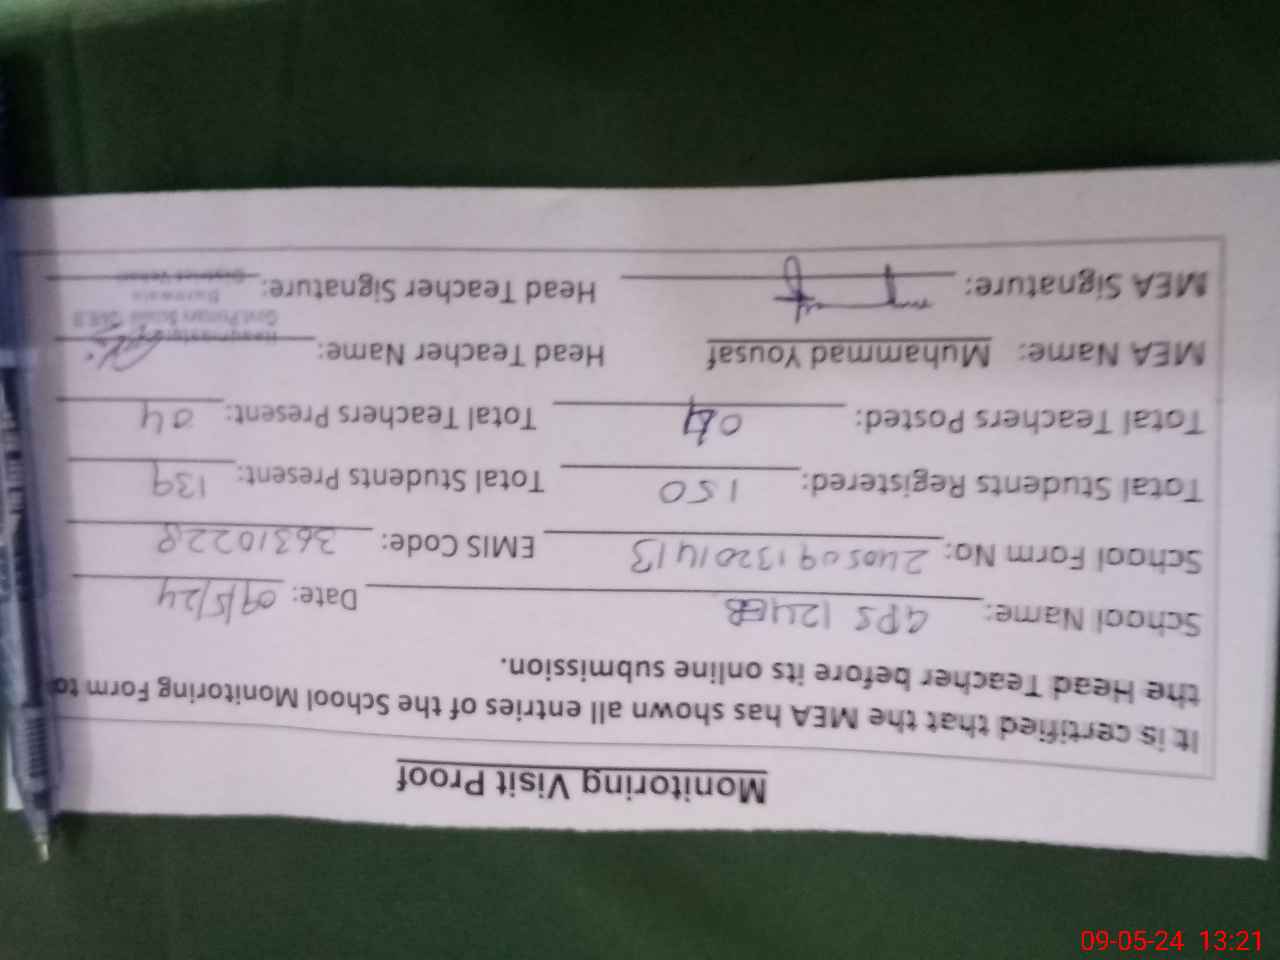 Monitoring Visit Proof
It is certified that the MEA has shown all entries of the School Monitoring Form to
the Head Teacher before its online submission.
School Name: GPS 124EB Date: 09/5/24
School Form No: 24050913201413 EMIS Code: 36310228
Total Students Registered: 150 Total Students Present: 139
Total Teachers Posted: 04 Total Teachers Present: 04
MEA Name: Muhammad Yousaf Head Teacher Name:
MEA Signature: Head Teacher Signature:
09-05-24 13:21